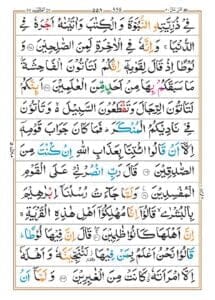 فِیْ ذُرِّیَّتِهِ النُّبُوَّةَ وَ الْكِتٰبَ وَ اٰتَیْنٰهُ اَجْرَهٗ فِی
الدُّنْیَا ۚ وَ اِنَّهٗ فِی الْاٰخِرَةِ لَمِنَ الصّٰلِحِیْنَ
وَ لُوْطًا اِذْ قَالَ لِقَوْمِهٖۤ اِنَّكُمْ لَتَاْتُوْنَ الْفَاحِشَةَ
مَا سَبَقَكُمْ بِهَا مِنْ اَحَدٍ مِّنَ الْعٰلَمِیْنَ اَىِٕنَّكُمْ
لَتَاْتُوْنَ الرِّجَالَ وَ تَقْطَعُوْنَ السَّبِیْلَ وَ تَاْتُوْنَ
فِیْ نَادِیْكُمُ الْمُنْكَرَ فَمَا كَانَ جَوَابَ قَوْمِهٖۤ
اِلَّاۤ اَنْ قَالُوا ائْتِنَا بِعَذَابِ اللّٰهِ اِنْ كُنْتَ مِنَ
الصّٰدِقِیْنَ قَالَ رَبِّ انْصُرْنِیْ عَلَى الْقَوْمِ
الْمُفْسِدِیْنَ وَ لَمَّا جَآءَتْ رُسُلُنَاۤ اِبْرٰهِیْمَ
بِالْبُشْرٰى قَالُوْۤا اِنَّا مُهْلِكُوْۤا اَهْلِ هٰذِهِ الْقَرْیَةِ
اِنَّ اَهْلَهَا كَانُوْا ظٰلِمِیْنَ قَالَ اِنَّ فِیْهَا لُوْطًا
قَالُوْا نَحْنُ اَعْلَمُ بِمَنْ فِیْهَا لَنُنَجِّیَنَّهٗ وَ اَهْلَهٗۤ
اِلَّا امْرَاَتَهٗ كَانَتْ مِنَ الْغٰبِرِیْنَ وَ لَمَّاۤ اَنْ